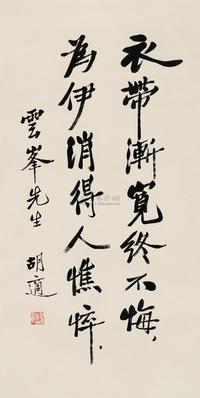 衣帶漸寬終不悔，
為伊消得人憔悴．
雲峯先生
胡適